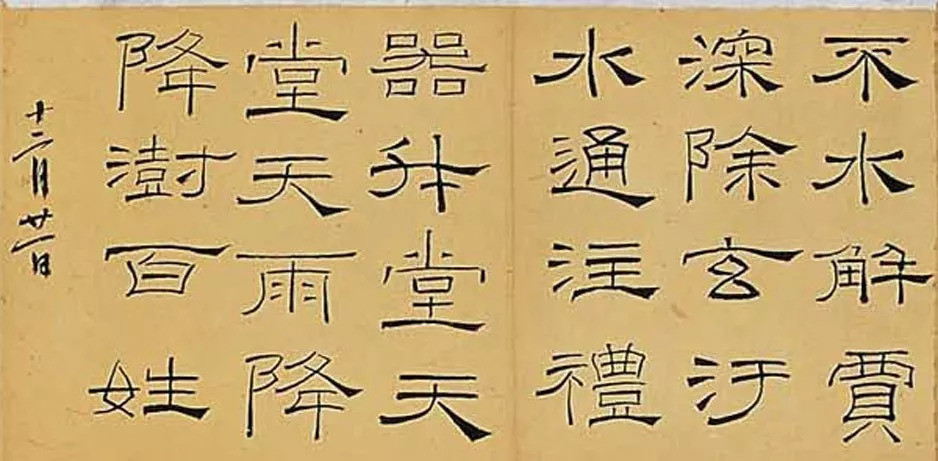 不水解賈
深除玄汙
水通注禮
器升堂天
堂天雨降
降澍百姓
十二月廿一日